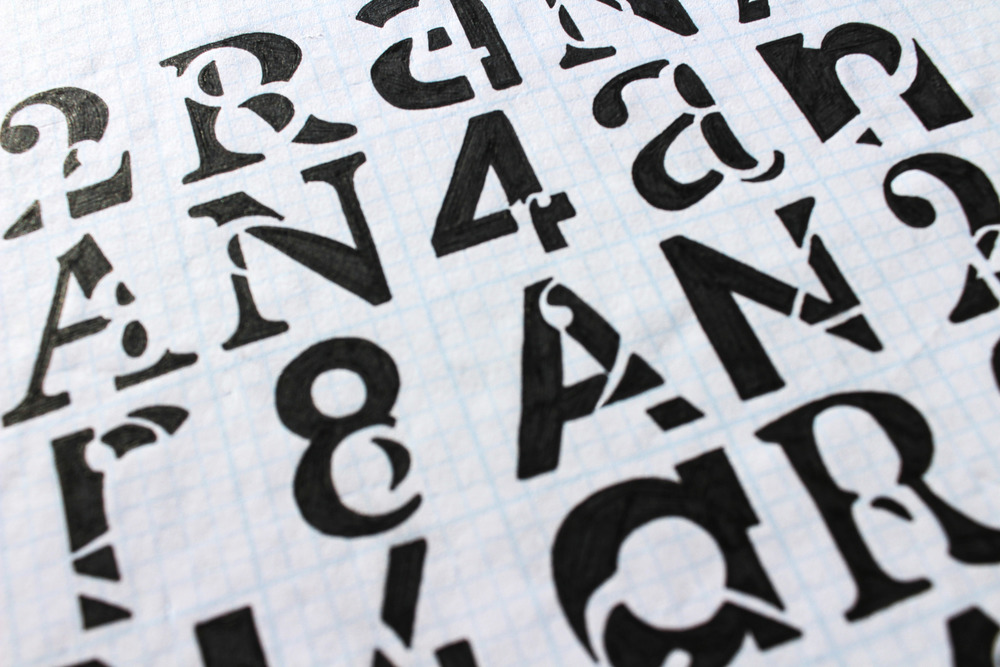 2 R a N
A N 4 a n
r 8 A N 2
a R